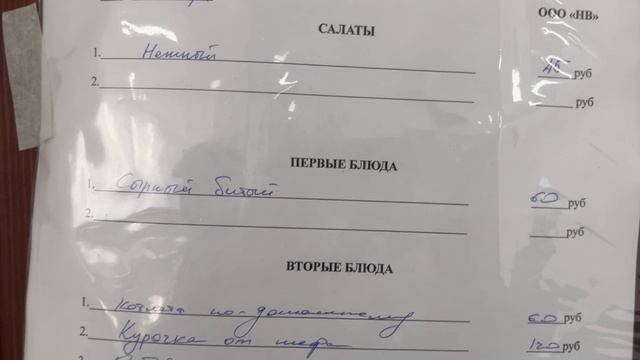 ООО «НВ»
САЛАТЫ
1. Нежный 45 руб
2. руб
ПЕРВЫЕ БЛЮДА
1. Сырный битый 60 руб
2. руб
ВТОРЫЕ БЛЮДА
1. Котлета по-домашнему 60 руб
2. Курочка от шефа 120 руб